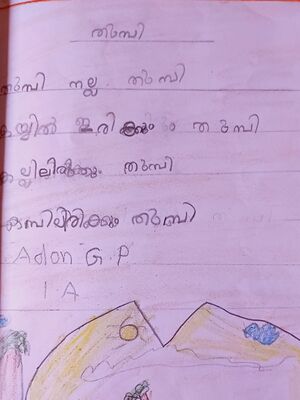 തുമ്പി
തുമ്പി നല്ല തുമ്പി
കയ്യിൽ ഇരിക്കും തുമ്പി
കല്ലിലിരിക്കും തുമ്പി
കമ്പിലിരിക്കും തുമ്പി
Adon G.P
I A